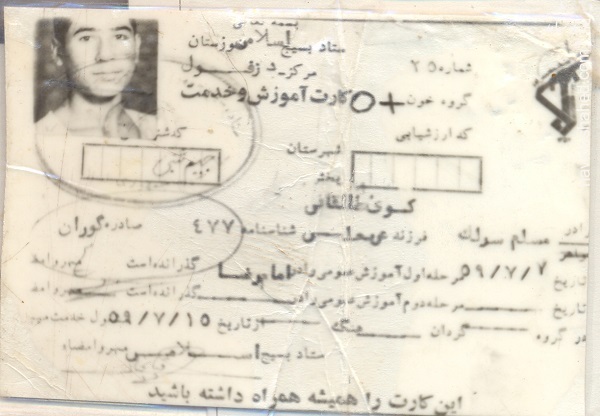 بسمه تعالی
ستاد بسیج اسلامی خوزستان
مرکز دزفول
شماره ۲۵
کارت آموزش و خدمت
گروه خون O+
کد ارزشیابی
شهرستان
بخش
کوی طالقانی
برادر مسلم سولک فرزند عبدعلی شناسنامه ۴۷۷ صادره گوران
تاریخ ۵۹/۷/۷ مرحله اول آموزش عمومی را در امام رضا گذرانده است مهر و امضا
تاریخ مرحله دوم آموزش عمومی را در گذرانده است مهر و امضا
در گروه گردان هنگ از تاریخ ۵۹/۷/۱۵ خدمت
ستاد بسیج اسلامی مهر و امضاء
این کارت را همیشه همراه داشته باشید